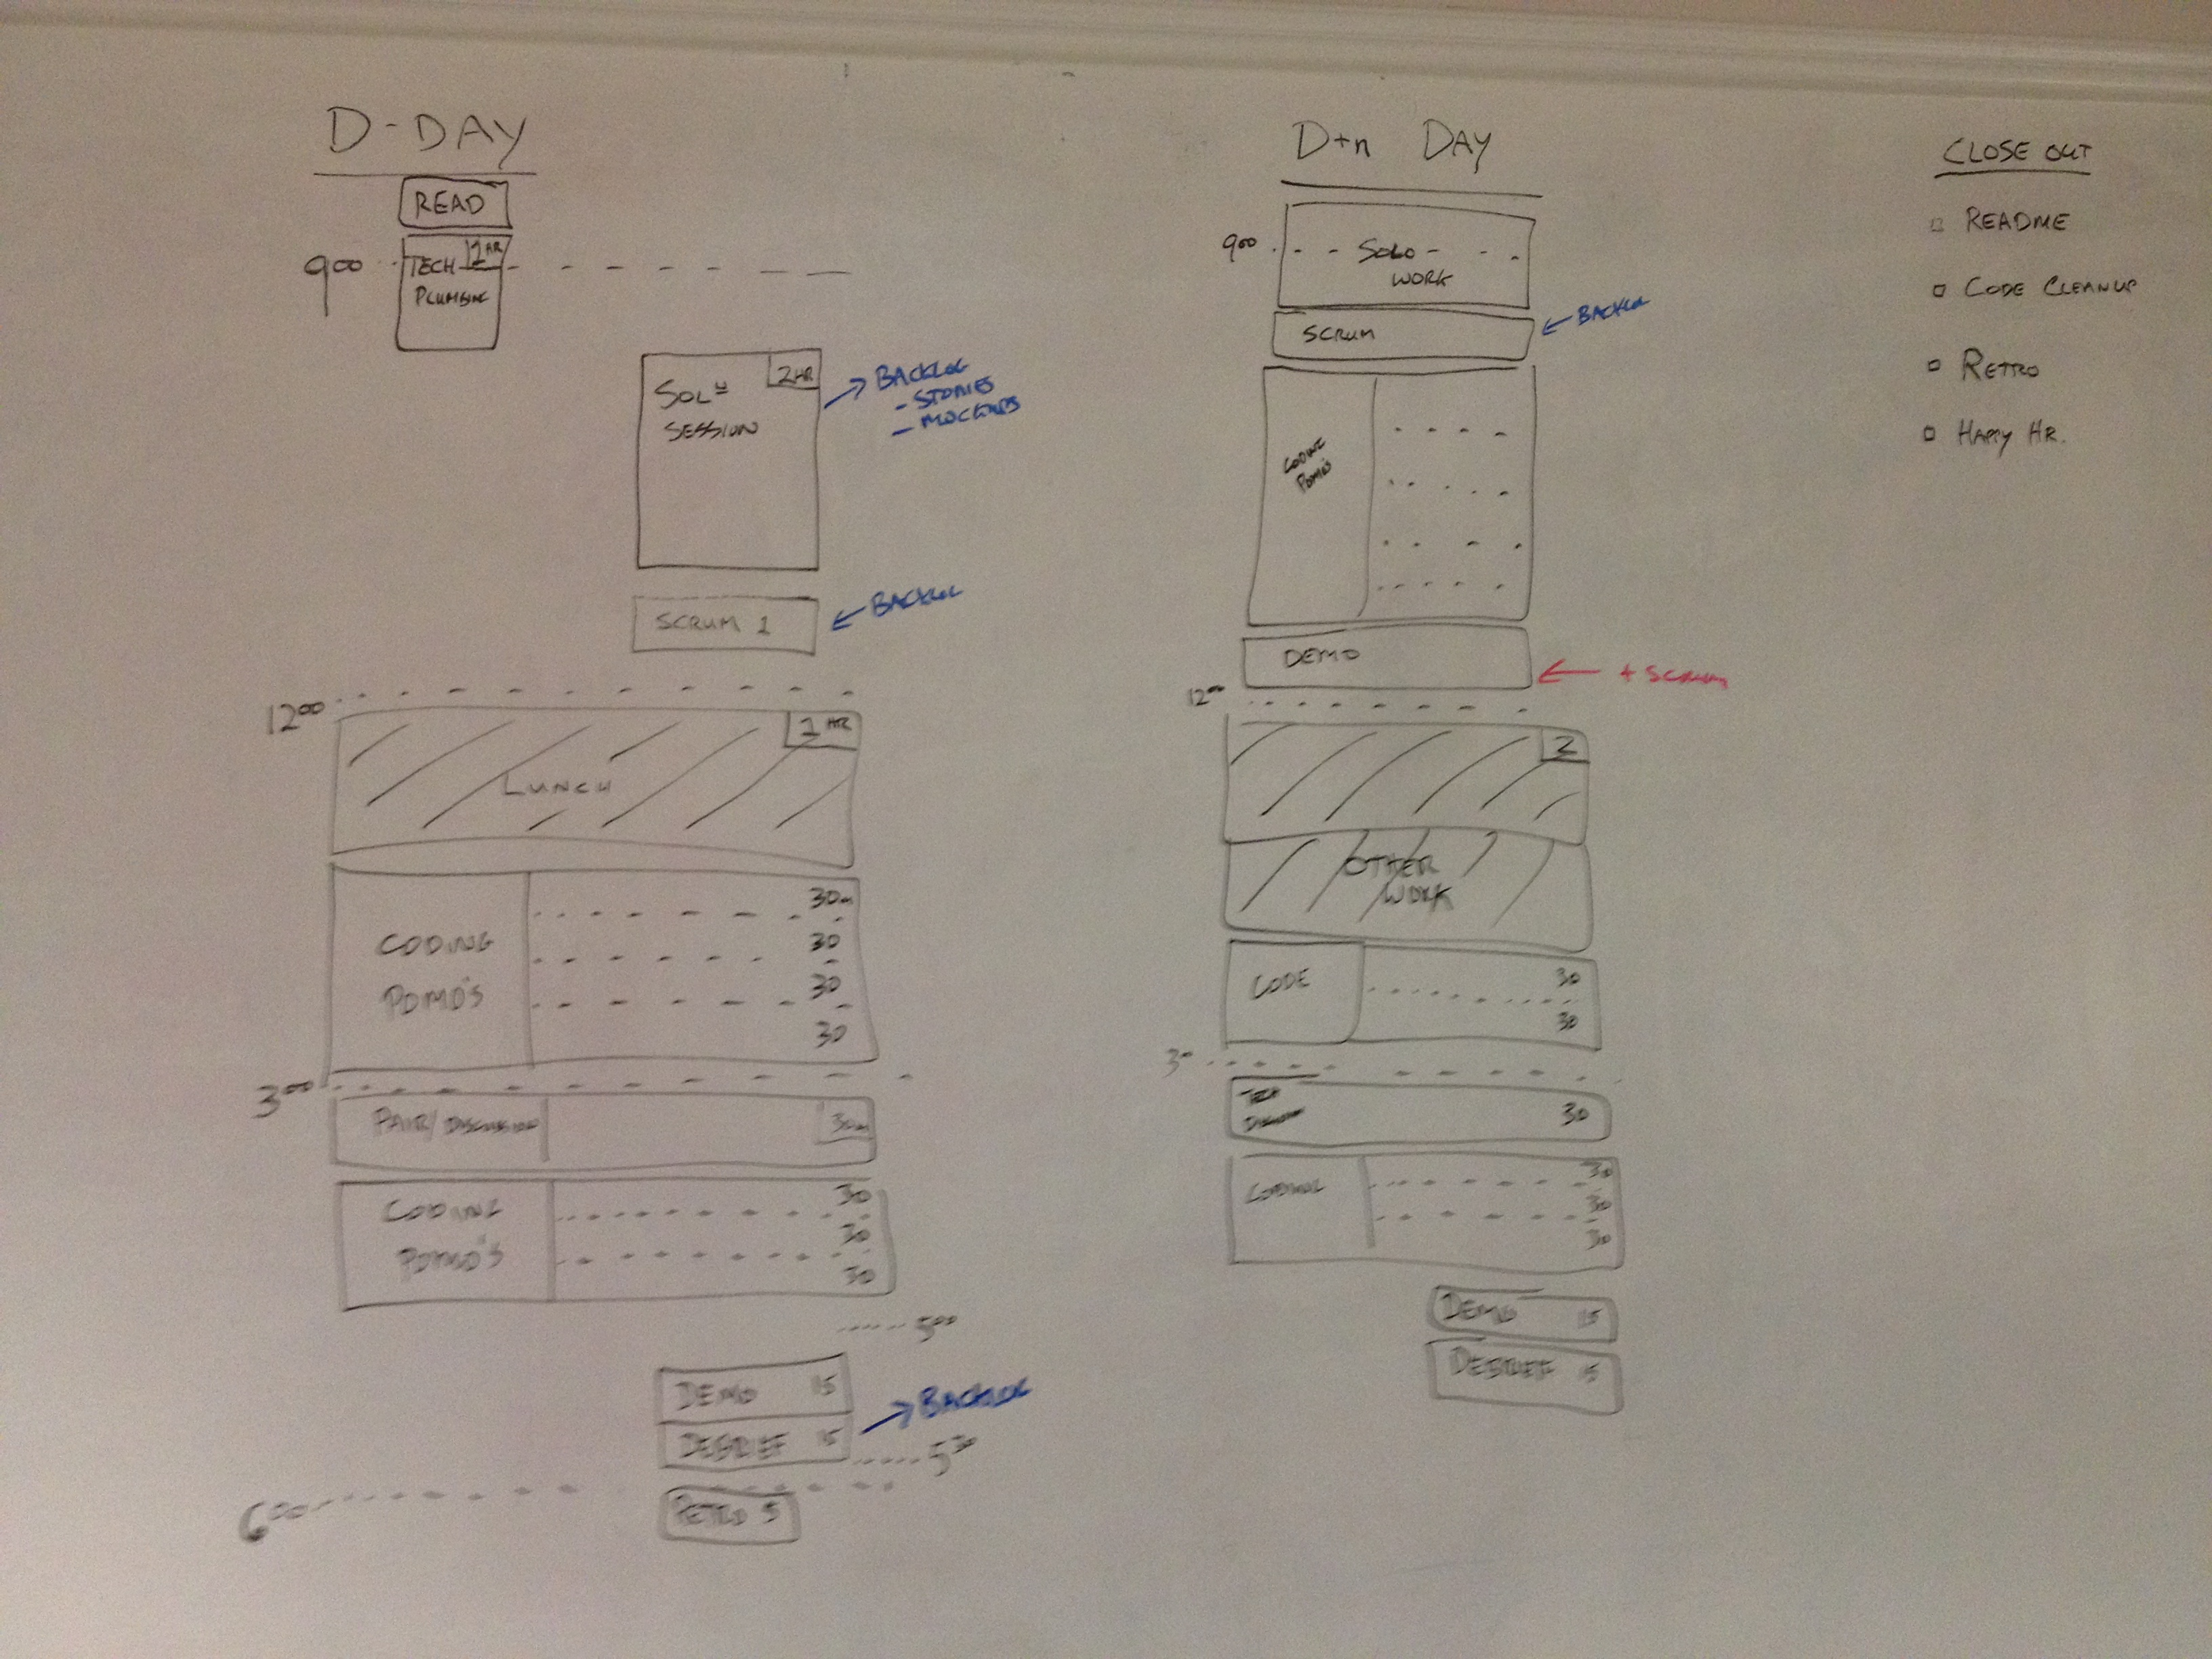 D-DAY
READ
9⁰⁰
TECH 1 HR
PLUMBING
SOLᴺ 2 HR
SESSION
BACKLOG
- STORIES
- MOCKUPS
SCRUM 1
BACKLOG
12⁰⁰
1 HR
LUNCH
CODING
POMO'S
30m
30
30
30
3⁰⁰
PAIR/DISCUSSION 30m
CODING
POMO'S
30
30
30
5⁰⁰
DEMO 15
DEBRIEF 15
BACKLOG
5³⁰
6⁰⁰
RETRO 5
D+n DAY
9⁰⁰
SOLO
WORK
SCRUM
BACKLOG
CODING
POMO'S
DEMO
+ SCRUM
12⁰⁰
2
OTHER
WORK
CODE
30
30
3⁰⁰
TECH
DISCUSSION
30
CODING
30
30
30
DEMO 15
DEBRIEF 15
CLOSE OUT
README
CODE CLEANUP
RETRO
HAPPY HR.